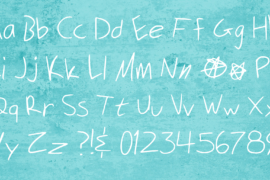 Aa Bb Cc Dd Ee Ff Gg H
i Jj Kk Ll Mm Nn
Qq Rr Ss Tt Uu Vv Ww X
y Zz ?!& 0123456789